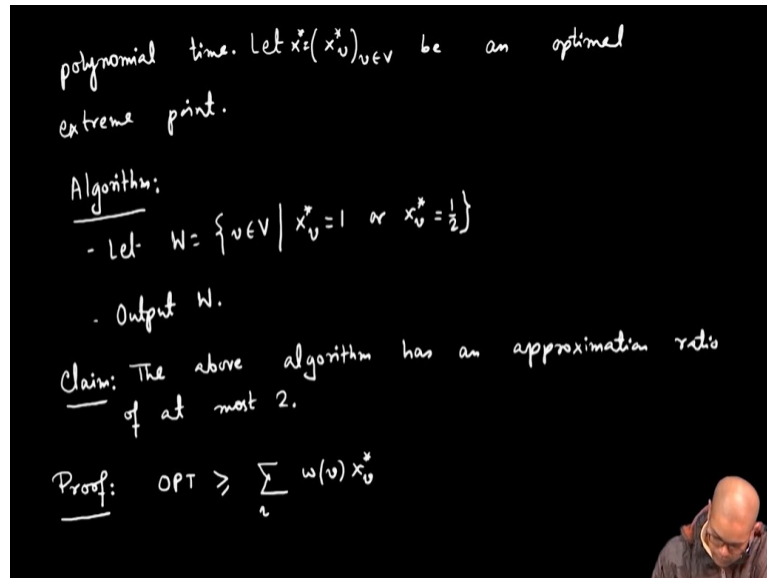 polynomial time. Let x*=(x*_v)_{v∈V} be an optimal
extreme point.
Algorithm:
- Let W = {v∈V | x*_v = 1 or x*_v = 1/2}
- Output W.
Claim: The above algorithm has an approximation ratio
of at most 2.
Proof: OPT ≥ ∑ w(v) x*_v